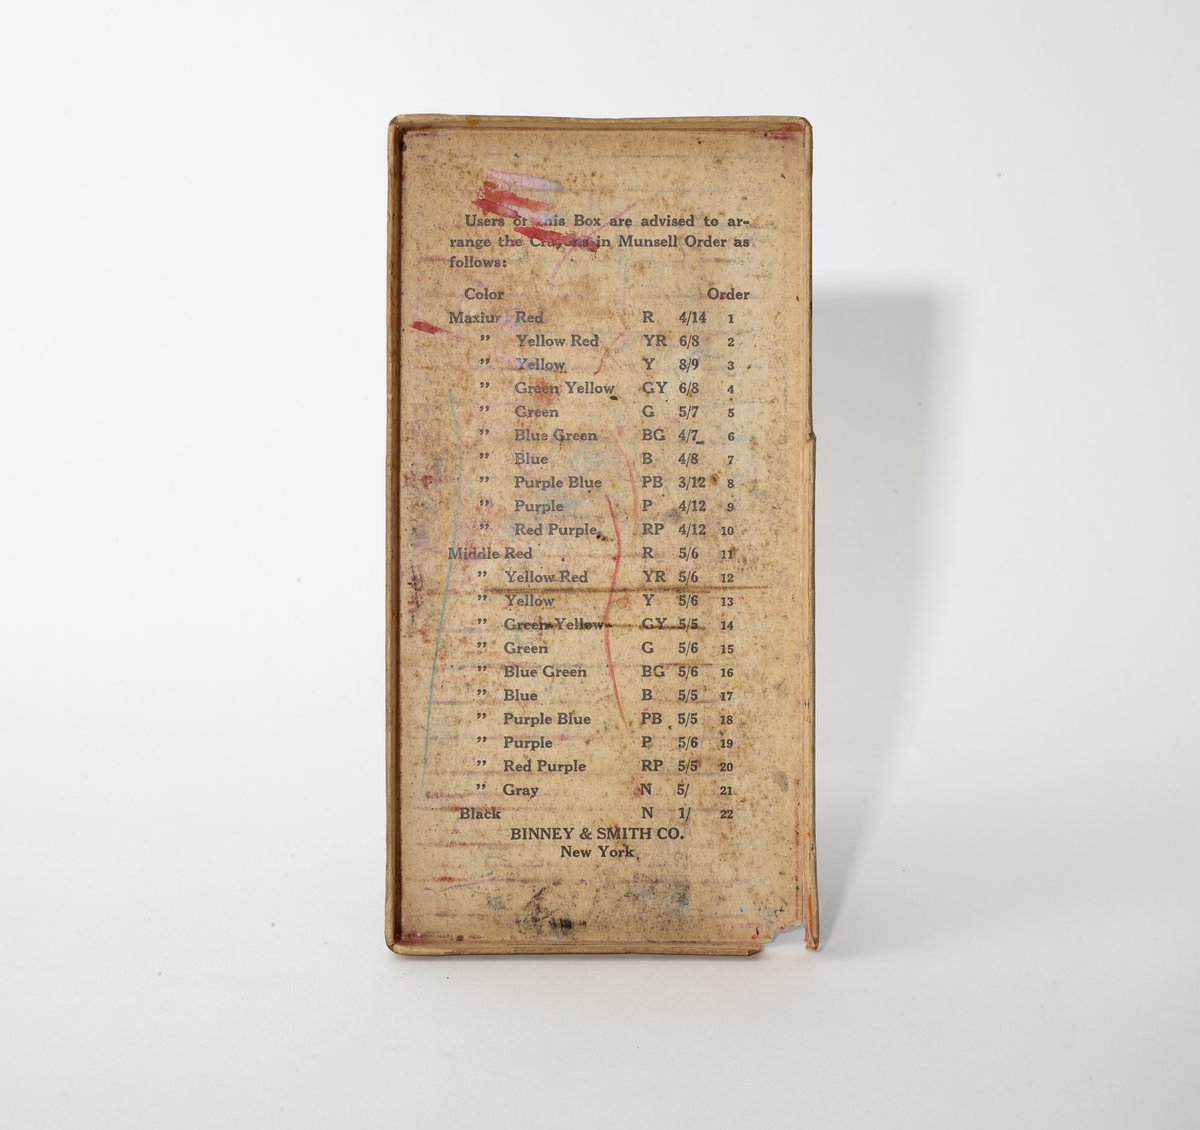 Users of this Box are advised to ar-
range the Crayons in Munsell Order as
follows:
Color Order
Maxium Red R 4/14 1
" Yellow Red YR 6/8 2
" Yellow Y 8/9 3
" Green Yellow GY 6/8 4
" Green G 5/7 5
" Blue Green BG 4/7 6
" Blue B 4/8 7
" Purple Blue PB 3/12 8
" Purple P 4/12 9
" Red Purple RP 4/12 10
Middle Red R 5/6 11
" Yellow Red YR 5/6 12
" Yellow Y 5/6 13
" Green Yellow GY 5/5 14
" Green G 5/6 15
" Blue Green BG 5/6 16
" Blue B 5/5 17
" Purple Blue PB 5/5 18
" Purple P 5/6 19
" Red Purple RP 5/5 20
" Gray N 5/ 21
Black N 1/ 22
BINNEY & SMITH CO.
New York